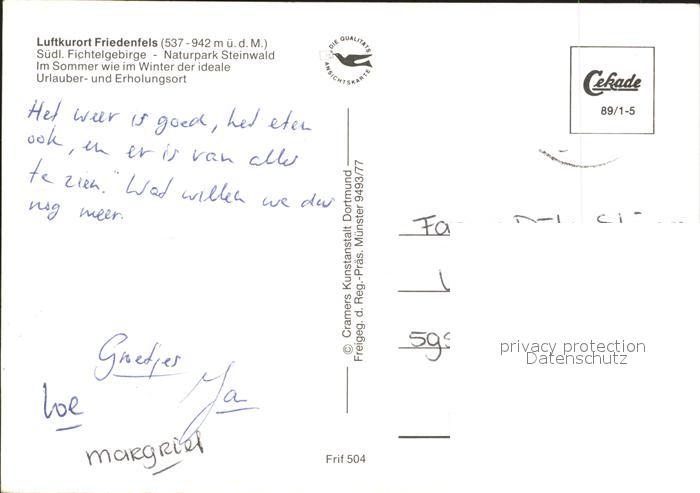 Luftkurort Friedenfels (537-942 m ü. d. M.)
Südl. Fichtelgebirge - Naturpark Steinwald
Im Sommer wie im Winter der ideale
Urlauber- und Erholungsort
DIE QUALITÄTS
ANSICHTSKARTE
Cekade
89/1-5
Het weer is goed, het eten
ook, en er is van alles
te zien. Wat willen we dan
nog meer.
Groetjes
Ja
margriet
© Cramers Kunstanstalt Dortmund
Freigeg. d. Reg.-Präs. Münster 9493/77
Fa
privacy protection
Datenschutz
Frif 504